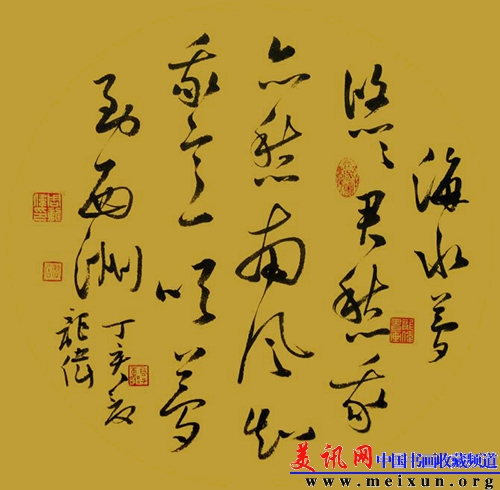 海水夢
悠悠君愁我
亦愁南风知
我意吹夢
到西洲
丁亥夏
美讯网 中国书画收藏频道
www.meixun.org